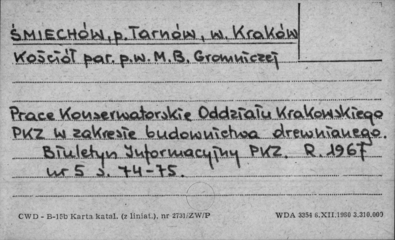 ŚMIECHÓW, p. Tarnów, w. Kraków
Kościół par. p.w. M.B. Gromniczej
Prace Konserwatorskie Oddziału Krakowskiego
PKZ w zakresie budownictwa drewnianego.
Biuletyn Informacyjny PKZ. R. 1967
nr 5 s. 74-75.
CWD - B-15b Karta katal. (z liniat.), nr 2731/ZW/P WDA 3354 6.XII.1966 2.216.003